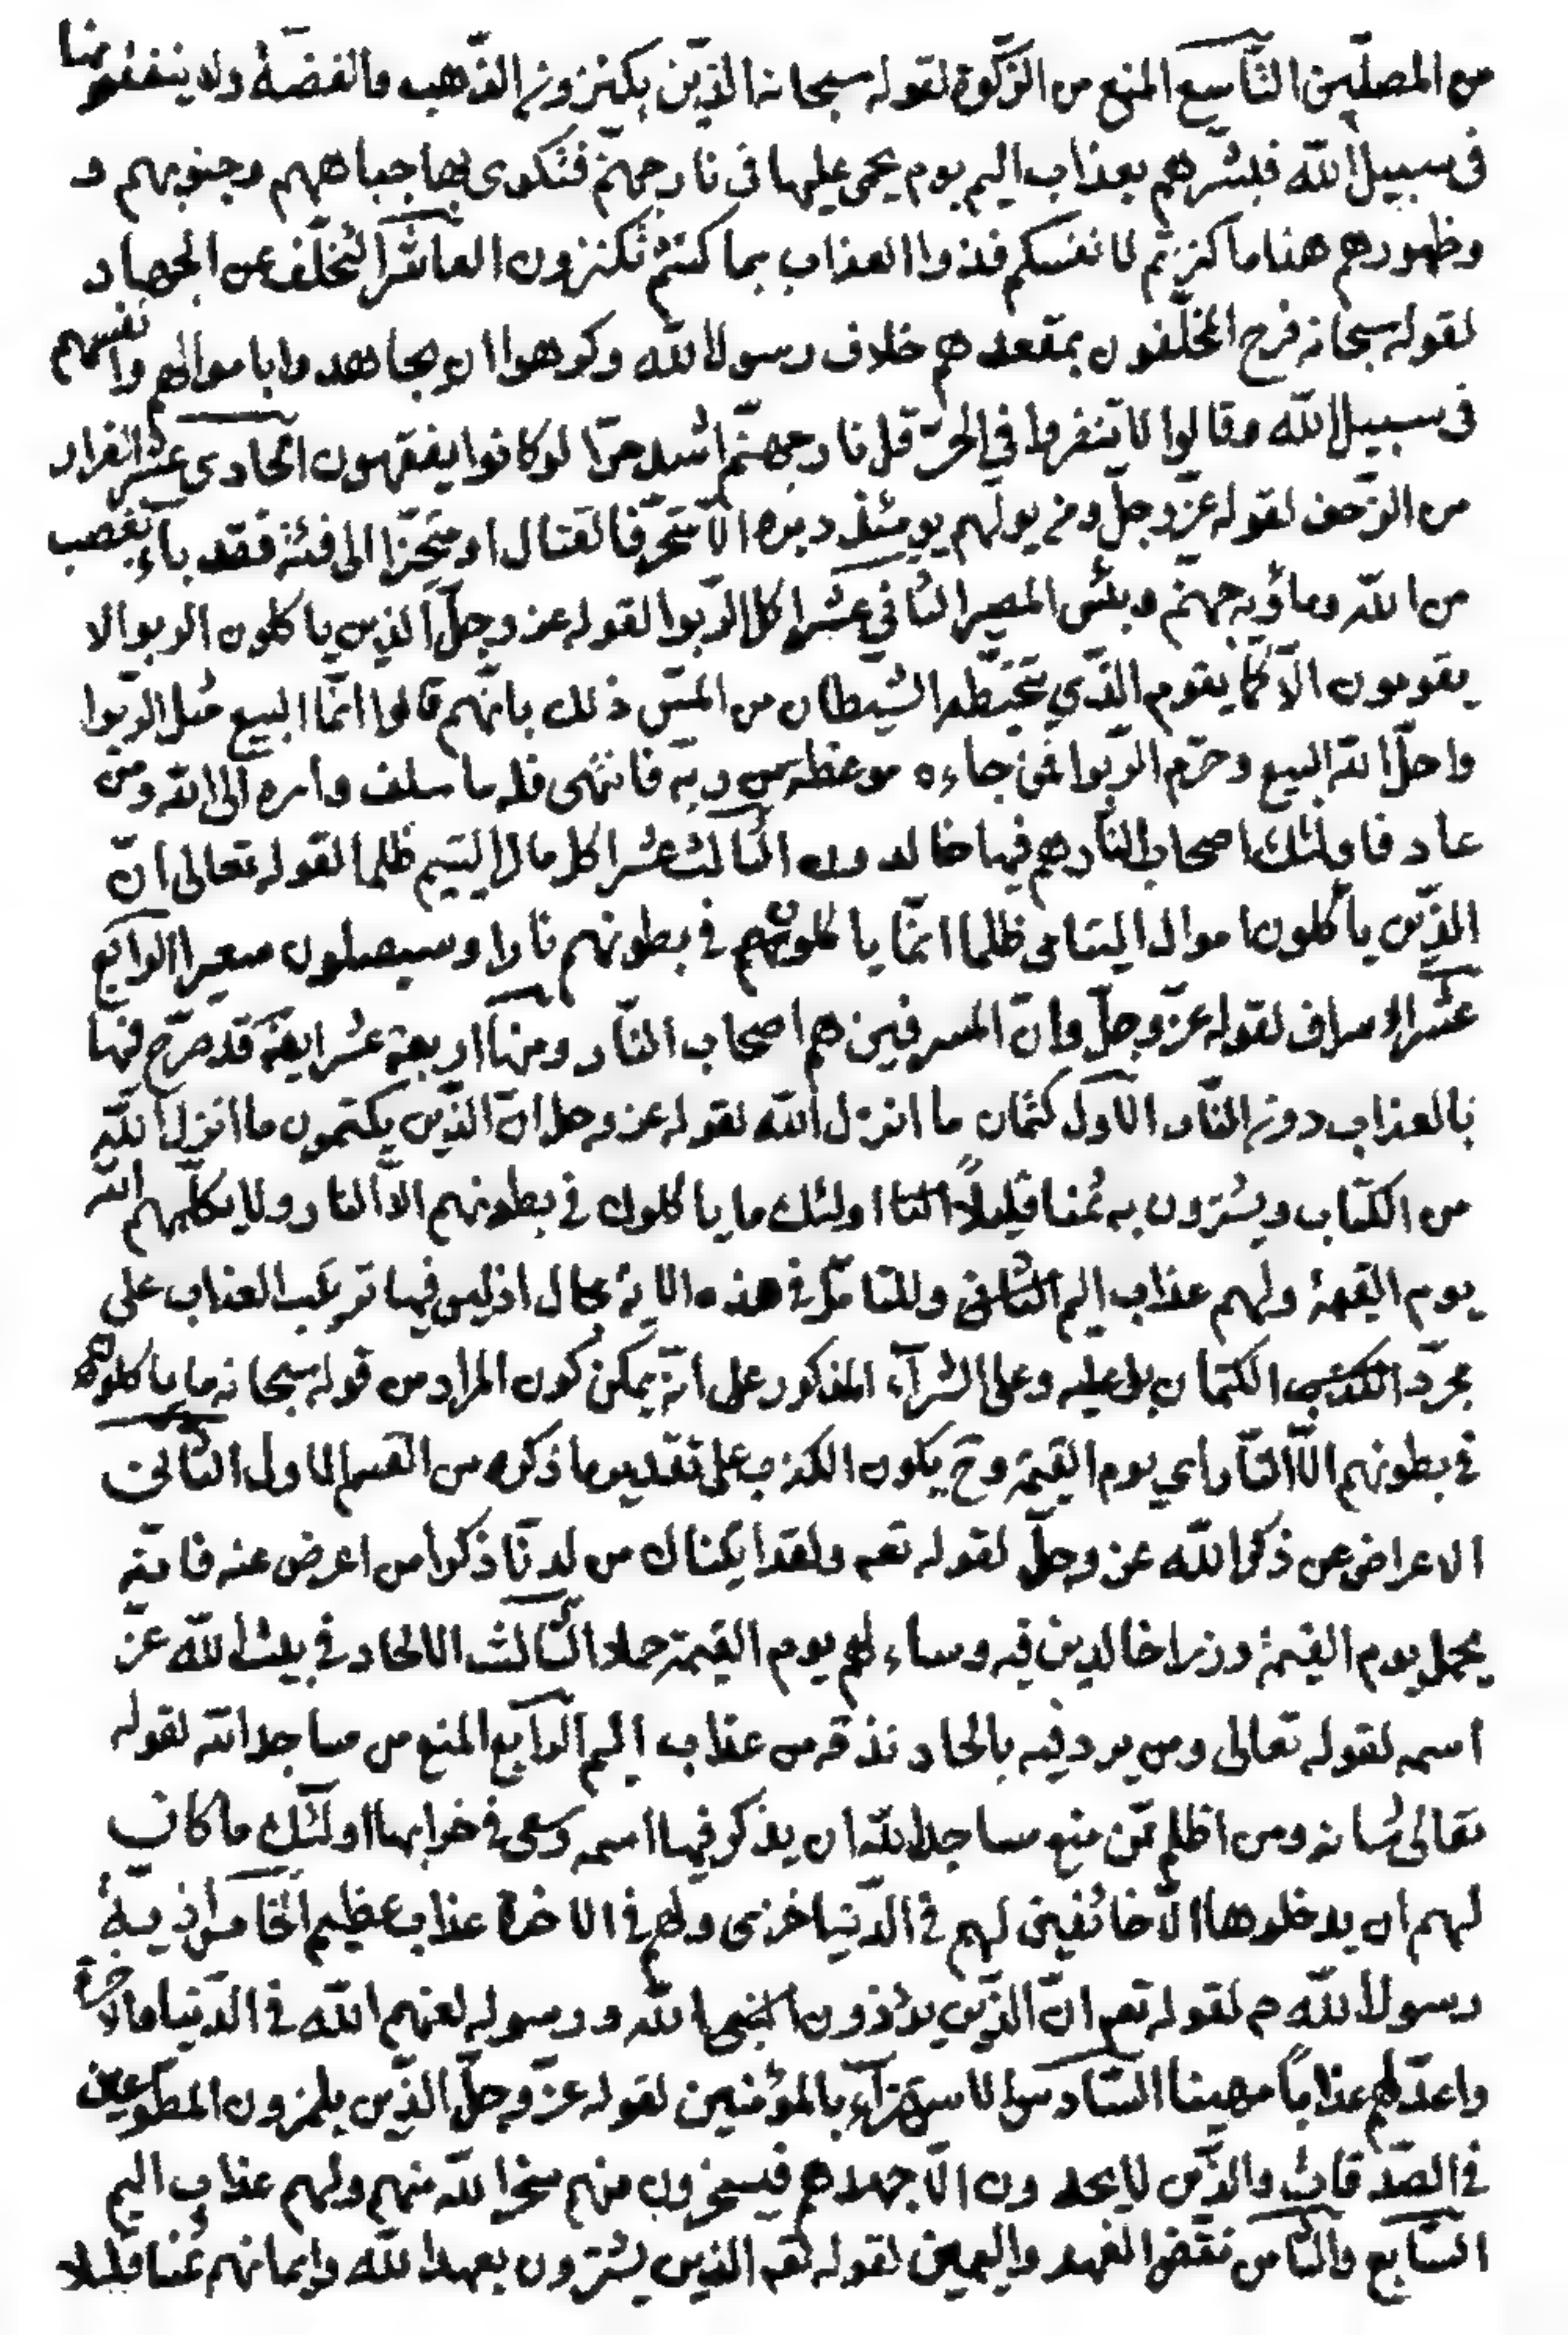 من المصلّين التّاسع المنع من الزّكوة لقوله سبحانه الذّين يكنزون الذّهب والفضّة ولا ينفقونها
فى سبيل الله فبشّرهم بعذاب اليم يوم يحمى عليها فى نار جهنّم فتكوى بها جباههم وجنوبهم و
وظهورهم هذا ما كنزتم لانفسكم فذوا العذاب بما كنتم تكنزون العاشر التخلّف عن الجهاد
لقوله سبحانه فرح المخلّفون بمقعدهم خلاف رسول الله وكرهوا ان يجاهدوا باموالهم وانفسهم
فى سبيل الله وقالوا لا تنفروا في الحرّ قل نار جهنّم اشد حرّا لو كانوا يفقهون الحادى عشر الفرار
من الزّحف لقوله عزّ وجلّ ومن يولّهم يومئذ دبره الّا متحرّفا لقتال او متحيّزا الى فئة فقد باء بغضب
من الله وماويه جهنّم وبئس المصير الثاني عشر اكل الرّبوا لقوله عز وجلّ الذين ياكلون الربوا لا
يقومون الّا كما يقوم الذّي يتخبّطه الشيطان من المسّ ذلك بانّهم قالوا انّما البيع مثل الرّبوا
واحلّ الله البيع وحرّم الرّبوا فمن جاءه موعظه من ربّه فانتهى فله ما سلف وامره الى الله ومن
عاد فاولئك اصحاب النّار هم فيها خالدون الثّالث عشر اكل مال اليتيم ظلما لقوله تعالى انّ
الذّين يأكلون اموال اليتامى ظلما انّما ياكلون فى بطونهم نارا وسيصلون سعيرا الرابع
عشر الاسراف لقوله عزّ وجلّ وانّ المسرفين هم اصحاب النّار ومنها اربعة عشر ايضة قد صرّح فيها
بالعذاب دون النّار الاوّل كتمان ما انزل الله لقوله عز وجل انّ الذّين يكتمون ما انزل الله
من الكتاب ويشترون به ثمنا قليلاً اولئك ما ياكلون فى بطونهم الّا النار ولا يكلّمهم الله
يوم القيمة ولهم عذاب اليم وللتامّل فى هذه الاية مجال اذ ليس فيها ترتّب العذاب على
مجرّد الكتمان بل عليه وعلى الشرآء المذكور على انّه يمكن كون المراد من قوله سبحانه ما ياكلون
فى بطونهم الّا النّار اي يوم القيمة وح يكون الكذب على تقدير ما ذكره من القسم الاول الثّانى
الاعراض عن ذكر الله عز وجلّ لقوله تعه ولقد ايتناك من لدنّا ذكرا من اعرض عنه فانّه
يحمل يوم القيمة وزرا خالدين فيه وساء لهم يوم القيمة حملا الثّالث الالحاد فى بيت الله عزّ
اسمه لقوله تعالى ومن يرد فيه بالحاد نذقه من عذاب اليم الرّابع المنع من مساجد الله لقوله
تعالى شانه ومن اظلم ممّن منع مساجد الله ان يذكر فيها اسمه وسعى فى خرابها اولئك ما كان
لهم ان يدخلوها الّا خائفين لهم فى الدّنيا خزى ولهم فى الاخرة عذاب عظيم الخامس اذيّة
رسول الله ص لقوله تعه انّ الذّين يؤذون الله ورسوله لعنهم الله فى الدّنيا والاخرة
واعدّ لهم عذاباً مهينا السّادس الاستهزآء بالمؤمنين لقوله عزّ وجلّ الذّين يلمزون المطوّعين
فى الصّدقات والذّين لا يجدون الّا جهدهم فيسخرون منهم سخر الله منهم ولهم عذاب اليم
السّابع والثّامن نقض العهد واليمين لقوله تعه الذين يشترون بعهد الله وايمانهم ثمنا قليلا